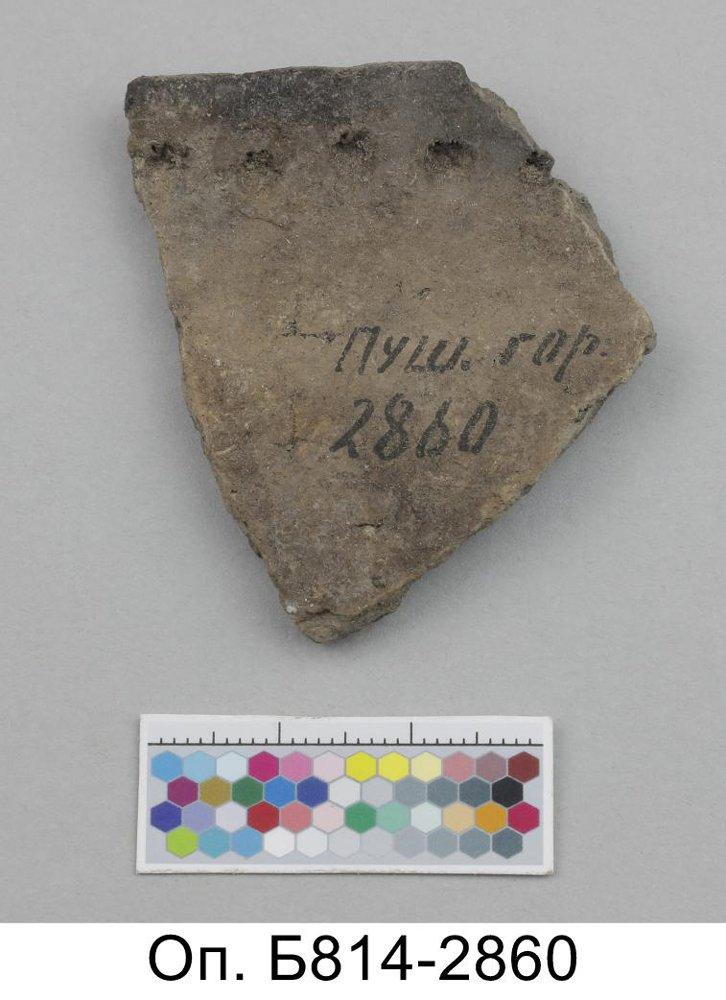 Пуш. гор.
2860
Оп. Б814-2860